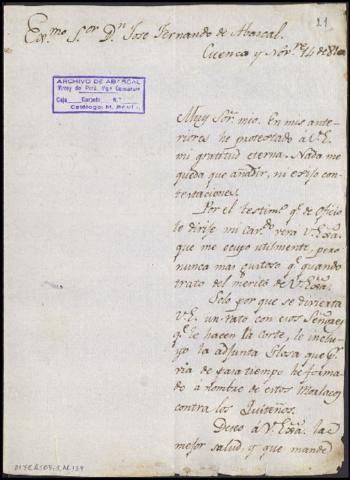 21
Ex.mo S.or D.n Jose Fernando de Abascal.
Cuenca y Nov.re 14 de 810
ARCHIVO DE ABASCAL
Virrey del Perú
Caja Carpeta N.º
Catálogo: M.
Muy Sor. mio. En mis ante-
riores he protestado á V.E.
mi gratitud eterna. Nada me
queda que añadir, ni exijo con-
testaciones.
Por el testim.o q.e de oficio
le dirije mi
que me ocupo utilmente, pero
nunca mas gustoso q.e quando
trato del merito de V. Exâ.
Solo por que se divierta
V.E. un rato con esos Señores
q.e le hacen la corte, le inclu-
yo la adjunta Glosa que p.r
via de pasatiempo he forma-
do a nombre de estos Morlacos
contra los Quiteños.
Deseo á V. Exâ. la
mejor salud, y que mande